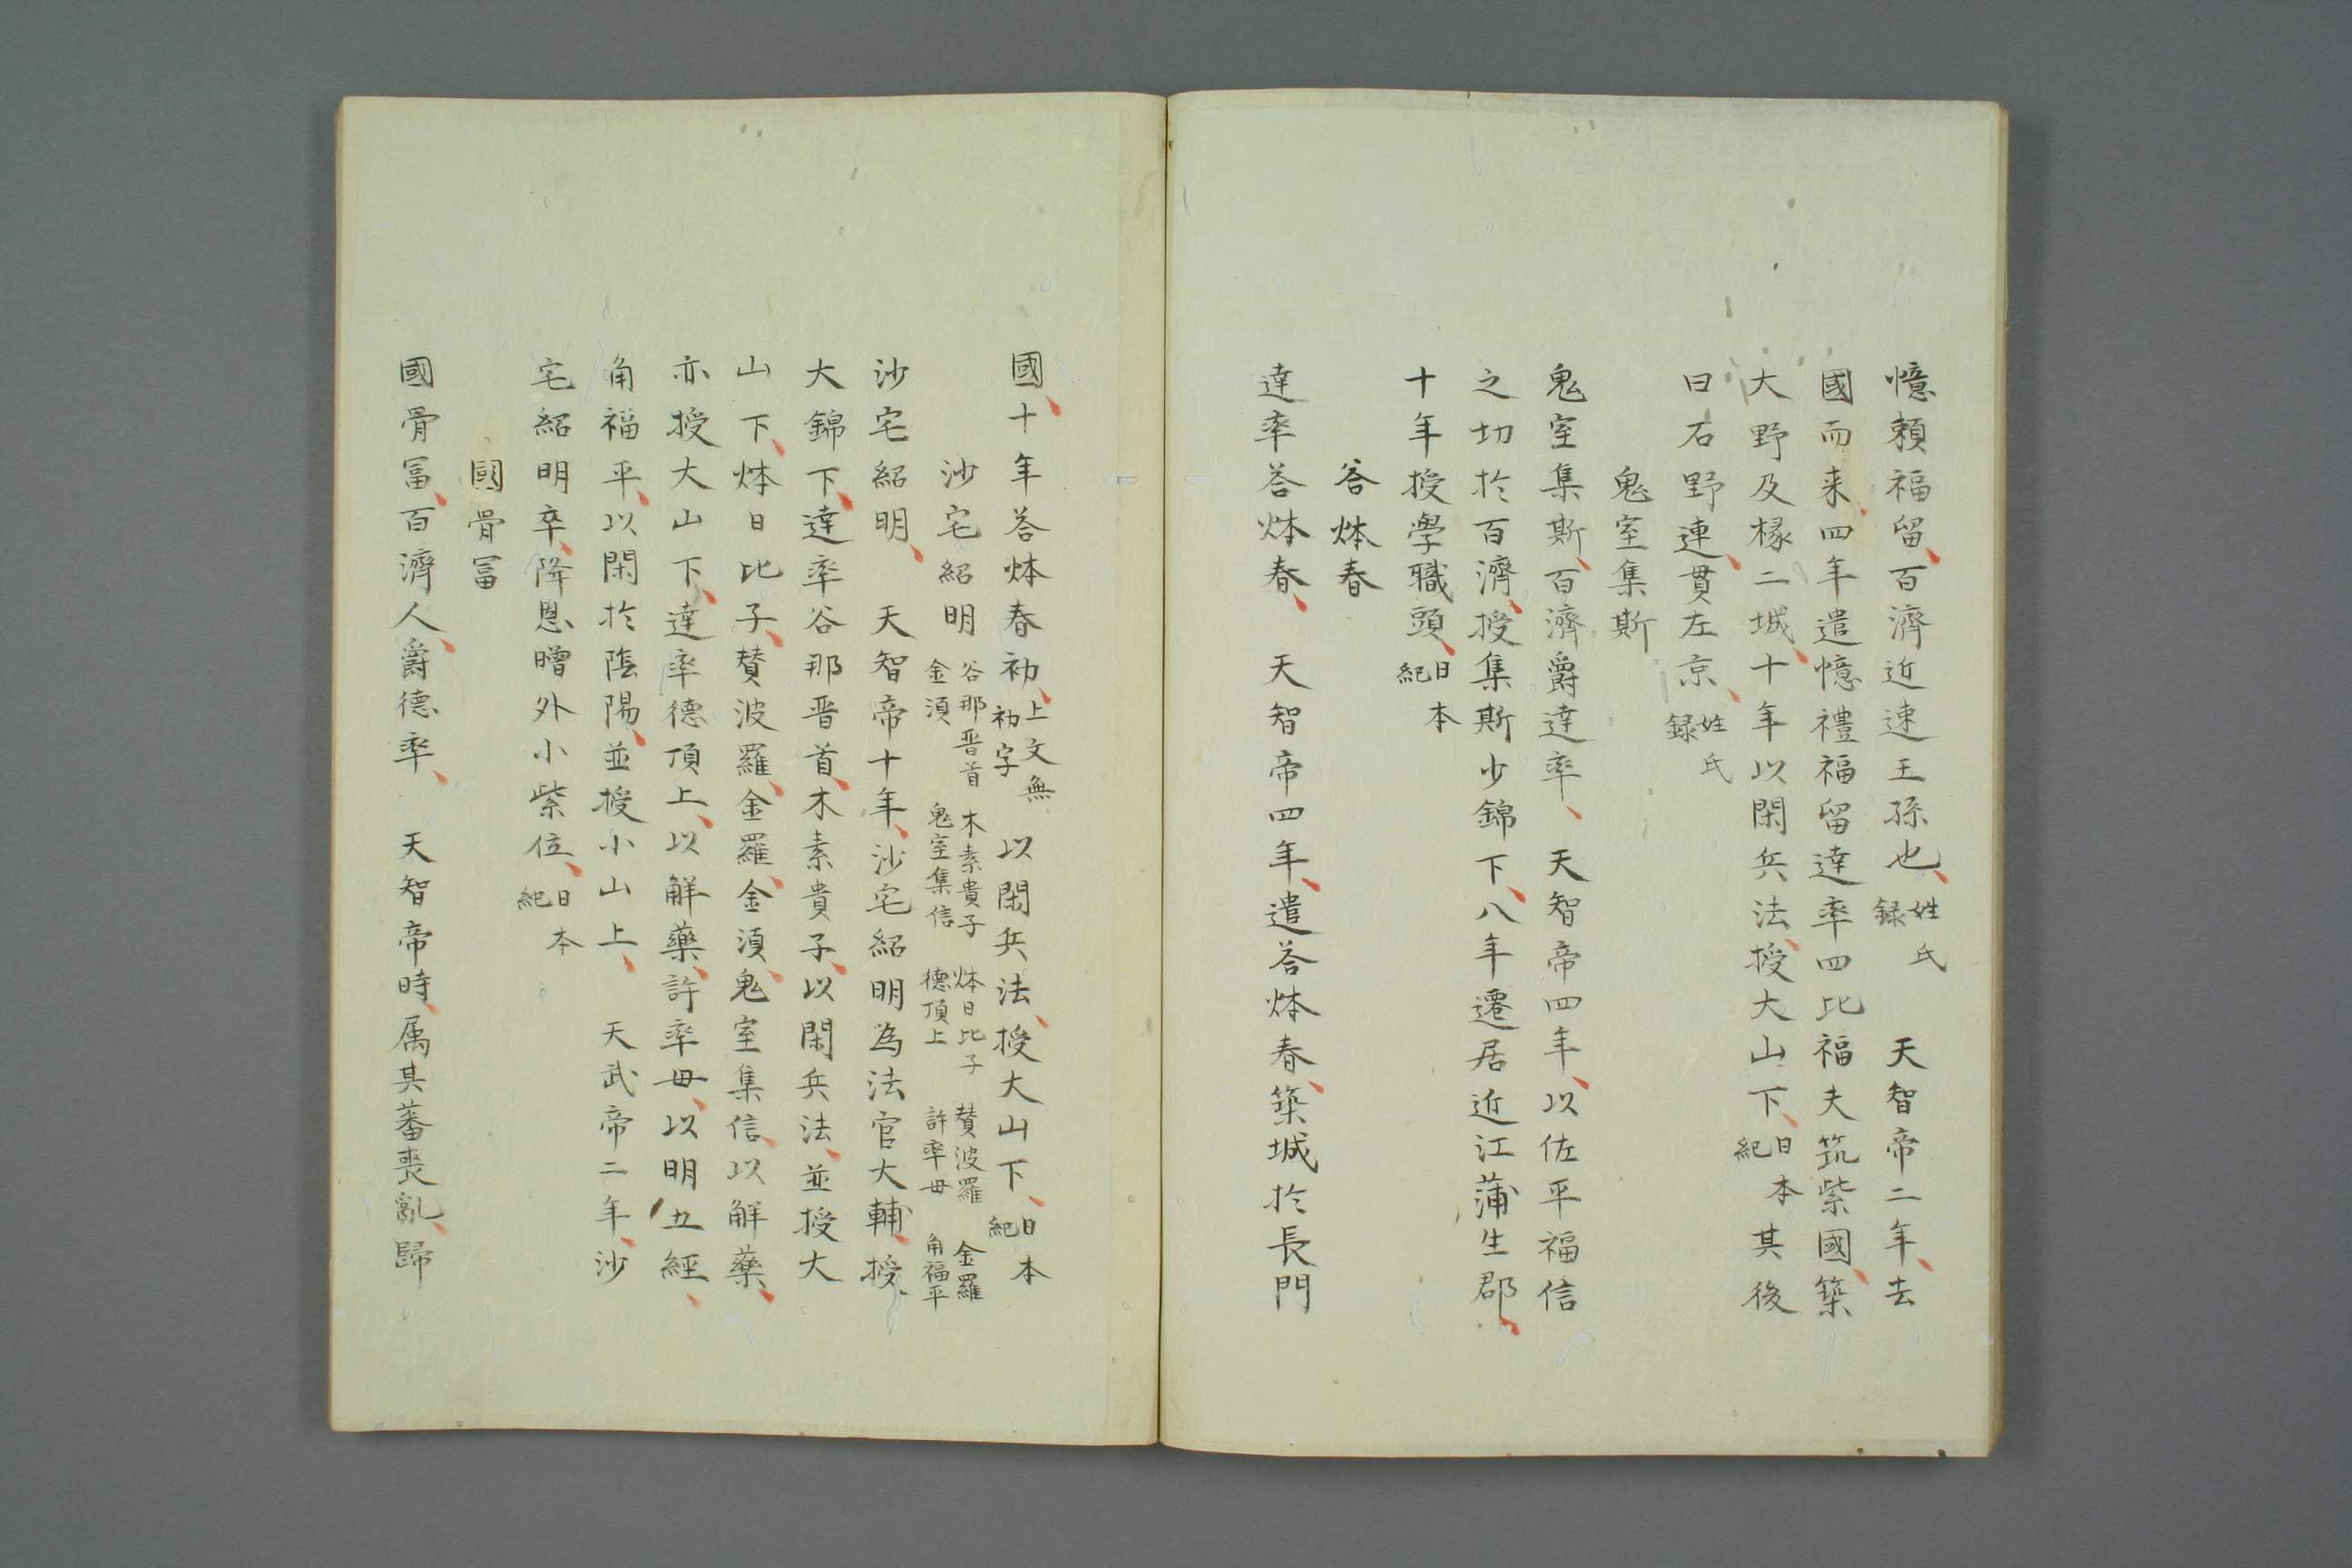 憶頼福留、百濟近速王孫也、姓氏録　天智帝二年、去
國而来、四年遣憶禮福留達率四比福夫筑紫國、築
大野及椽二城、十年以閑兵法、授大山下、日本紀其後
曰石野連、貫左京、姓氏録
鬼室集斯
鬼室集斯、百濟爵達率、天智帝四年、以佐平福信
之切於百濟、授集斯少錦下、八年遷居近江蒲生郡、
十年授學職頭、日本紀
荅㶱春
達率荅㶱春、天智帝四年、遣荅㶱春、築城於長門
國、十年荅㶱春初、上文無初字以閑兵法、授大山下、日本紀
沙宅紹明 谷那晋首 木素貴子 㶱日比子 賛波羅 金羅
金湏 鬼室集信 德頂上 許率母 角福平
沙宅紹明、天智帝十年、沙宅紹明為法官大輔、授
大錦下、達率谷那晋首、木素貴子、以閑兵法、並授大
山下、㶱日比子、賛波羅、金羅、金湏、鬼室集信、以解藥、
亦授大山下、達率德頂上、以解藥、許率母、以明五經、
角福平、以閑於陰陽、並授小山上、天武帝二年、沙
宅紹明卒、降恩贈外小紫位、日本紀
國骨冨
國骨冨、百濟人、爵德率、天智帝時、属其蕃喪亂、歸